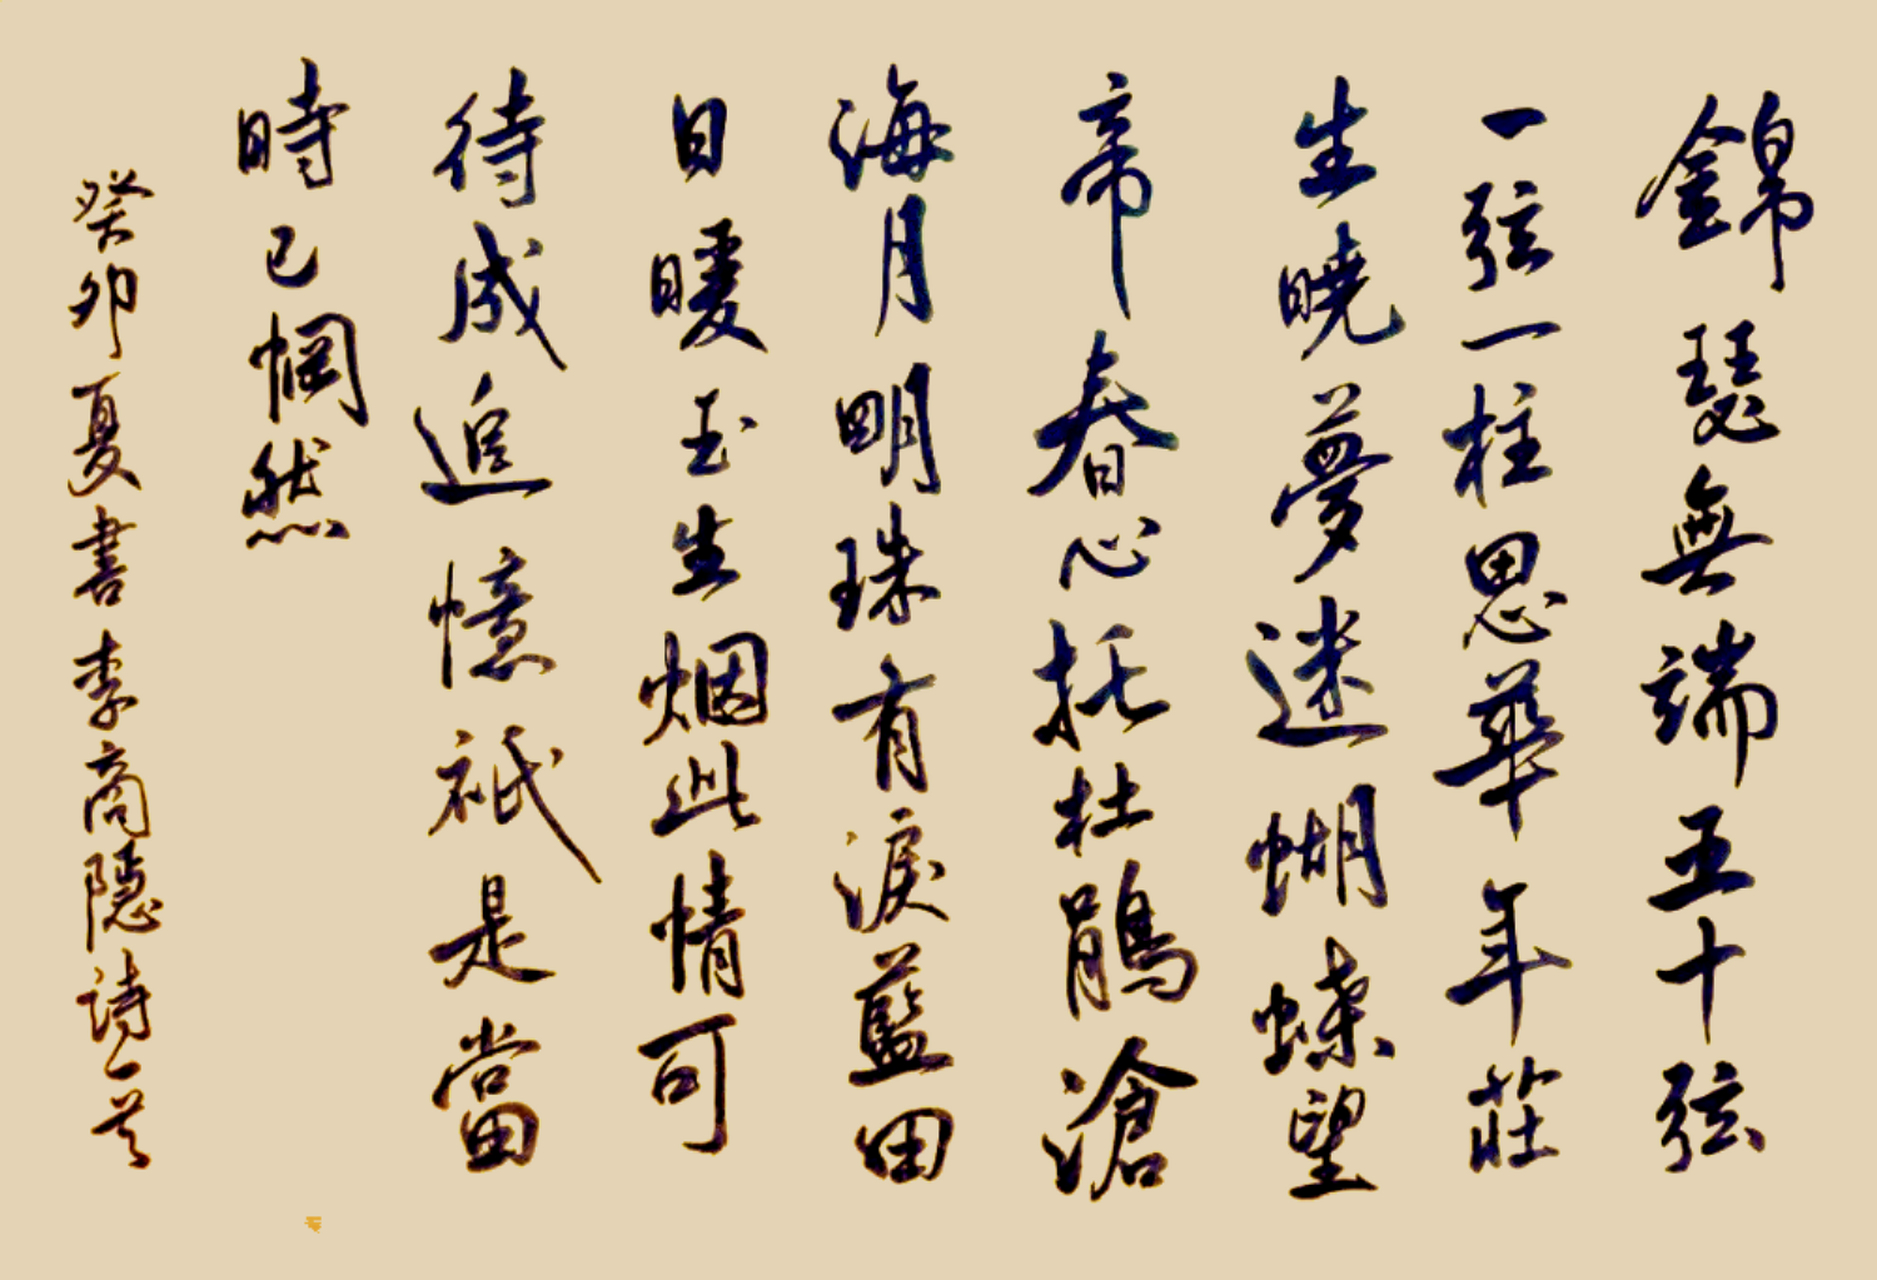 錦瑟無端五十弦
一弦一柱思華年莊
生曉夢迷蝴蝶望
帝春心托杜鵑滄
海月明珠有淚藍田
日暖玉生烟此情可
待成追憶祇是當
時已惘然
癸卯夏書李商隱詩一首